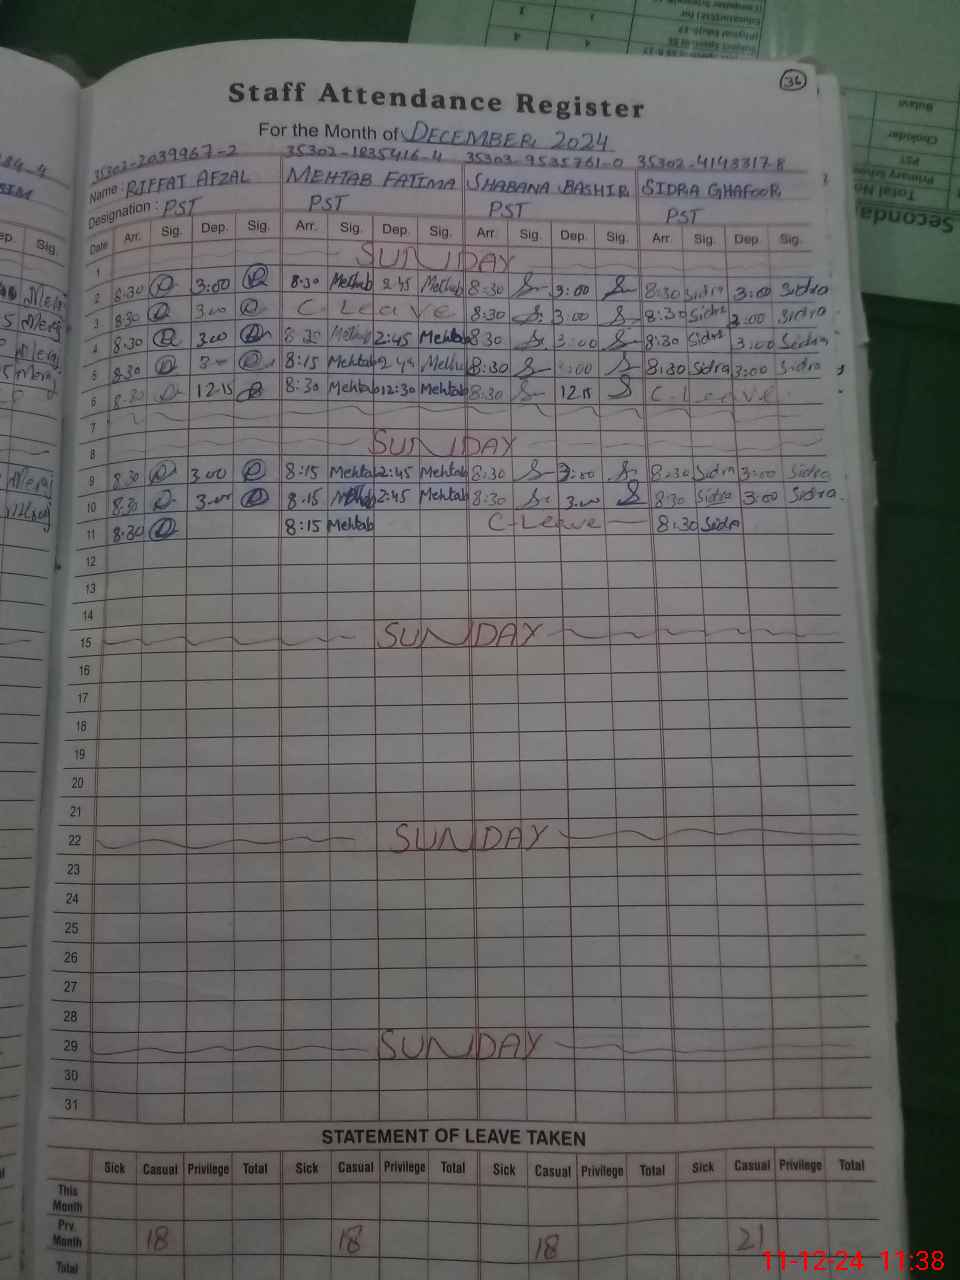 36
Staff Attendance Register
For the Month of DECEMBER, 2024
35302-2039967-2 35302-1835416-4 35303-9535761-0 35302-4143317-8
Name : RIFFAT AFZAL MEHTAB FATIMA SHABANA BASHIR SIDRA GHAFOOR
Designation : PST PST PST PST
Date Arr. Sig. Dep. Sig. Arr. Sig. Dep. Sig. Arr. Sig. Dep. Sig. Arr. Sig. Dep. Sig.
1 SUNDAY
2 8:30 3:00 8:30 Mehtab 2:45 Mehtab 8:30 3:00 8:30 Sidra 3:00 Sidra
3 8:30 3:00 C Leave 8:30 3:00 8:30 Sidra 3:00 Sidra
4 8:30 3:00 8:30 Mehtab 2:45 Mehtab 8:30 3:00 8:30 Sidra 3:00 Sidra
5 8:30 8:15 Mehtab 8:30 8:30 Sidra 3:00 Sidra
6 8:30 12:15 8:30 Mehtab 12:30 Mehtab 8:30 12:15 C-Leave
7
8 SUNDAY
9 8:30 3:00 8:15 Mehtab 2:45 Mehtab 8:30 3:00 8:30 Sidra 3:00 Sidra
10 8:30 3:00 8:15 2:45 Mehtab 8:30 3:00 8:30 Sidra 3:00 Sidra
11 8:30 8:15 Mehtab C-Leave 8:30 Sidra
12
13
14
15 SUNDAY
16
17
18
19
20
21
22 SUNDAY
23
24
25
26
27
28
29 SUNDAY
30
31
STATEMENT OF LEAVE TAKEN
Sick Casual Privilege Total Sick Casual Privilege Total Sick Casual Privilege Total Sick Casual Privilege Total
This Month
Prv. Month 18 18 18 21
Total
11-12-24 11:38